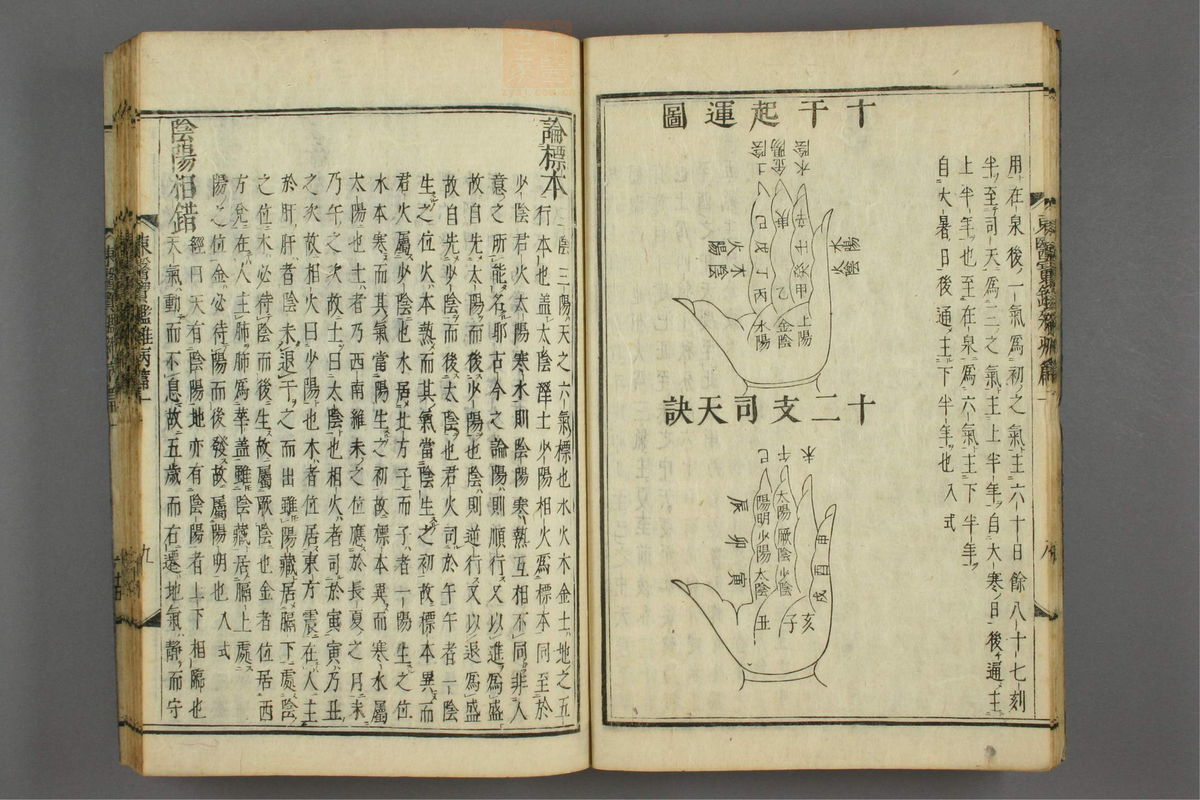 用在泉後一氣爲初之氣主六十日餘八十七刻
半至司天爲三之氣主上半年自大寒日後通主
上半年也至在泉爲六氣主下半年
自大暑日後通主下半年也入式
十干起運圖
土陰
金陽
水陰
己
庚
辛
戊
壬
丁
癸
丙
乙
甲
火陽
木陰
木陽
火陰
水陽
金陰
土陽
十二支司天訣
巳
午
未
辰
卯
寅
丑
子
亥
戌
酉
申
陽明少陽太陰
太陽厥陰少陰
論標本
陰三陽天之六氣標也水火木金土地之五
行本也盖太陰濕土少陽相火爲標本同至於
少陰君火太陽寒水則陰陽寒熱互相不同非入
意之所能名耶古今之論陽則順行又以進爲盛
故自先太陽而後少陽也陰則逆行又以退爲盛
故自先少陰而後太陰也君火司於午午者一陰
生之位火本熱而其氣當陰生之初故標本異而
君火屬少陰也水居北方子而子者一陽生之位
水本寒而其氣當陽生之初故標本異而寒水屬
太陽也土者乃西南維未之位應於長夏之月未
乃午之次故土曰太陰也相火者司於寅寅乃丑
之次故相火曰少陽也木者位居東方震在人主
於肝肝者陰未退干之而出雖陽藏居膈下處陰
之位木必待陰而後生故屬厥陰也金者位居西
方兌在人主肺肺爲華盖雖陰藏居膈上處
陽之位金必待陽而後發故屬陽明也入式
陰陽相錯
經曰天有陰陽地亦有陰陽者上下相臨也
天氣動而不息故五歲而右遷地氣靜而守
東醫寶鑑雜病篇一
九